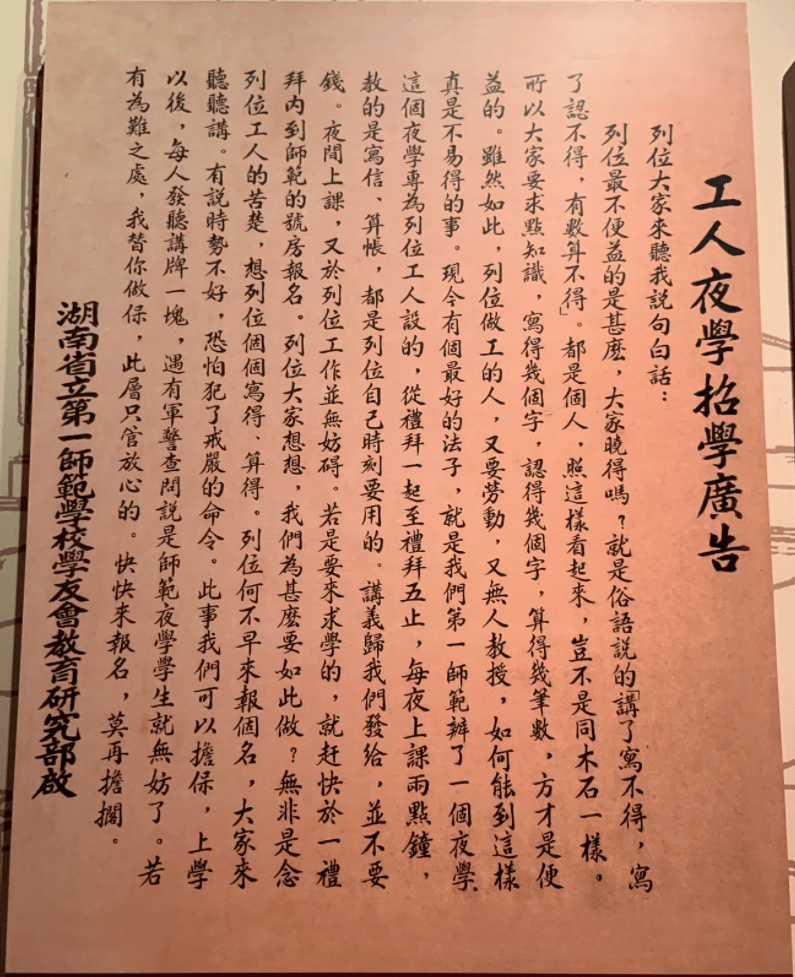 工人夜學招學廣告
列位大家來聽我説句白話：
列位最不便益的是甚麽，大家曉得嗎？就是俗語説的「講了寫不得，寫
了認不得，有數算不得」。都是個人，照這樣看起來，豈不是同木石一樣。
所以大家要求點知識，寫得幾個字，認得幾個字，算得幾筆數，方才是便
益的。雖然如此，列位做工的人，又要勞動，又無人教授，如何能到這樣
真是不易得的事。現今有個最好的法子，就是我們第一師範辦了一個夜學
這個夜學專為列位工人設的，從禮拜一起至禮拜五止，每夜上課兩點鐘，
教的是寫信、算帳，都是列位自己時刻要用的。講義歸我們發給，並不要
錢。夜間上課，又於列位工作並無妨碍。若是要來求學的，就赶快於一禮
拜内到師範的號房報名。列位大家想想，我們為甚麽要如此做？無非是念
列位工人的苦楚，想列位個個寫得、算得。列位何不早來報個名，大家來
聽聽講。有説時勢不好，恐怕犯了戒嚴的命令。此事我們可以擔保，上學
以後，每人發聽講牌一塊，遇有軍警查問説是師範夜學學生就無妨了。若
有為難之處，我替你做保，此層只管放心的。快快來報名，莫再擔擱。
湖南省立第一師範學校學友會教育研究部啟